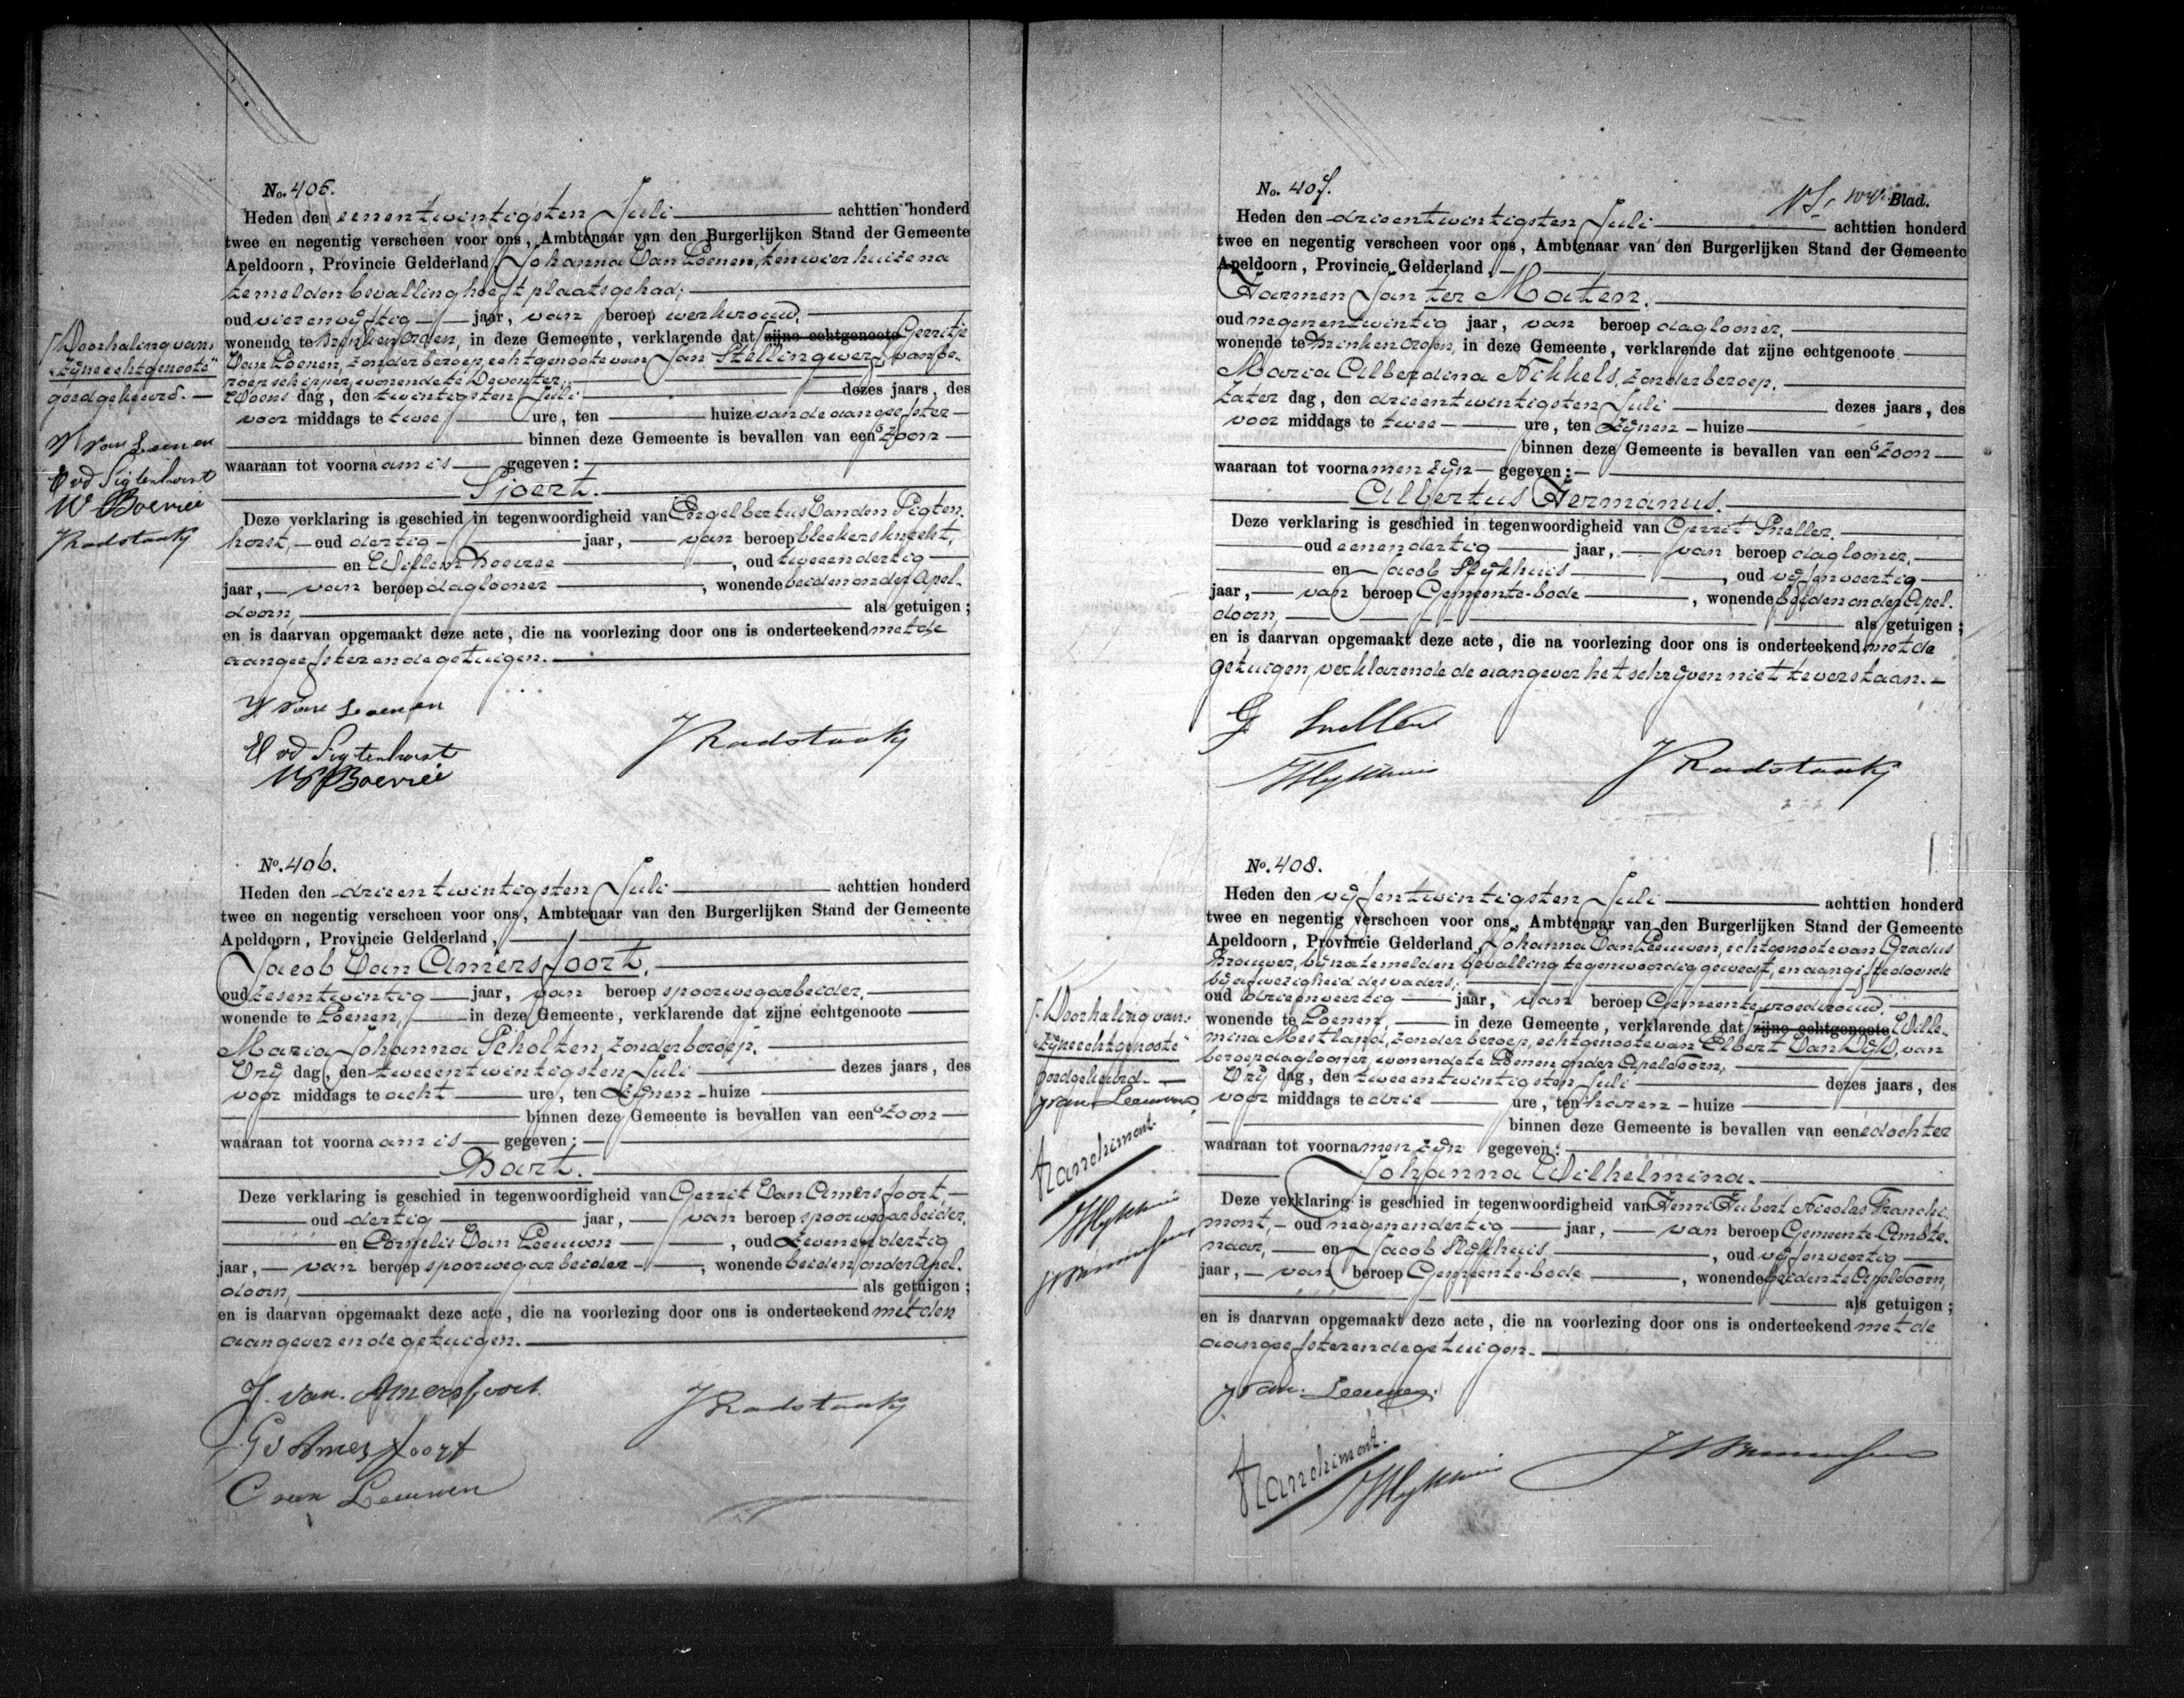 No. 405.
Heden den eenentwintigsten Juli achttien honderd
twee en negentig verscheen voor ons, Ambtenaar van den Burgerlijken Stand der Gemeente
Apeldoorn, Provincie Gelderland, Johanna Van Loenen, ten wier huize na
temelden bevalling heeft plaatsgehad;
oud vierenvijftig jaar, van beroep werkvrouw,
wonende te Brinkenorden, in deze Gemeente, verklarende dat zijne echtgenoote Gerritje
Van Loenen, zonder beroep, echtgenoote van Jan Stellingwerf, van be-
roep schipper, wonende te Deventer,
Woens dag, den twintigsten Juli dezes jaars, des
voor middags te twee ure, ten huize van de aangeefster
binnen deze Gemeente is bevallen van een zoon
waaraan tot voorna am is gegeven:
Sjoert.
Deze verklaring is geschied in tegenwoordigheid van Engelbertus Van den Sigten-
horst, oud dertig jaar, van beroep bleekersknecht,
en Willem Boevree, oud tweeendertig
jaar, van beroep daglooner, wonende beiden onder Apel-
doorn, als getuigen;
en is daarvan opgemaakt deze acte, die na voorlezing door ons is onderteekend met de
aangeefster en de getuigen.
J van Loenen
E vd Sigtenhorst
W Boevree
J Radstaak
Doorhaling van
"zijne echtgenoote"
goedgekeurd.
J van Loenen
E vd Sigtenhorst
W Boevree
J Radstaak
No. 406.
Heden den drieentwintigsten Juli achttien honderd
twee en negentig verscheen voor ons, Ambtenaar van den Burgerlijken Stand der Gemeente
Apeldoorn, Provincie Gelderland,
Jacob Van Amersfoort,
oud zesentwintig jaar, van beroep spoorwegarbeider,
wonende te Loenen, in deze Gemeente, verklarende dat zijne echtgenoote
Maria Johanna Scholten, zonder beroep,
Vrij dag, den tweeentwintigsten Juli dezes jaars, des
voor middags te acht ure, ten zijnen huize
binnen deze Gemeente is bevallen van een zoon
waaraan tot voorna am is gegeven:
Bart.
Deze verklaring is geschied in tegenwoordigheid van Gerrit Van Amersfoort,
oud dertig jaar, van beroep spoorwegarbeider,
en Cornelis Van Leeuwen, oud zevenendertig
jaar, van beroep spoorwegarbeider, wonende beiden onder Apel-
doorn, als getuigen;
en is daarvan opgemaakt deze acte, die na voorlezing door ons is onderteekend met den
aangever en de getuigen.
J. van Amersfoort
G v Amersfoort
C van Leeuwen
J Radstaak
No. 407.
Blad.
Heden den drieentwintigsten Juli achttien honderd
twee en negentig verscheen voor ons, Ambtenaar van den Burgerlijken Stand der Gemeente
Apeldoorn, Provincie Gelderland,
Harmen Jan ter Maten,
oud negenentwintig jaar, van beroep daglooner,
wonende te Brinkenorden, in deze Gemeente, verklarende dat zijne echtgenoote
Maria Alberdina Nikkels, zonder beroep,
Zater dag, den drieentwintigsten Juli dezes jaars, des
voor middags te twee ure, ten zijnen huize
binnen deze Gemeente is bevallen van een zoon
waaraan tot voorna men zijn gegeven:
Albertus Hermanus.
Deze verklaring is geschied in tegenwoordigheid van Gerrit Sneller,
oud eenendertig jaar, van beroep daglooner,
en Jacob Slijkhuis, oud vijfenveertig
jaar, van beroep Gemeente-bode, wonende beiden onder Apel-
doorn, als getuigen;
en is daarvan opgemaakt deze acte, die na voorlezing door ons is onderteekend met de
getuigen, verklarende de aangever het schrijven niet te verstaan.
G Sneller
J Slijkhuis
J Radstaak
No. 408.
Heden den vijfentwintigsten Juli achttien honderd
twee en negentig verscheen voor ons, Ambtenaar van den Burgerlijken Stand der Gemeente
Apeldoorn, Provincie Gelderland, Johanna Van Leeuwen, echtgenoote van Gradus
Brouwer, bij na temelden bevalling tegenwoordig geweest, en aangifte doende
bij afwezigheid des vaders;
oud drieenveertig jaar, van beroep Gemeente vroedvrouw,
wonende te Loenen, in deze Gemeente, verklarende dat zijne echtgenoote Wille-
mina Mestland, zonder beroep, echtgenoote van Elbert Van Wijk, van
beroep daglooner, wonende te Loenen onder Apeldoorn,
Vrij dag, den tweeentwintigsten Juli dezes jaars, des
voor middags te drie ure, ten haren huize
binnen deze Gemeente is bevallen van eene dochter
waaraan tot voorna men zijn gegeven:
Johanna Wilhelmina.
Deze verklaring is geschied in tegenwoordigheid van Henri Hubert Nicolas Franchi-
mont, oud negenendertig jaar, van beroep Gemeente-Ambte-
naar, en Jacob Slijkhuis, oud vijfenveertig
jaar, van beroep Gemeente-bode, wonende beiden te Apeldoorn,
als getuigen;
en is daarvan opgemaakt deze acte, die na voorlezing door ons is onderteekend met de
aangeefster en de getuigen.
J van Leeuwen
Franchimont.
J Slijkhuis
Doorhaling van
"zijne echtgenoote"
goedgekeurd.
J van Leeuwen
Franchimont.
J Slijkhuis